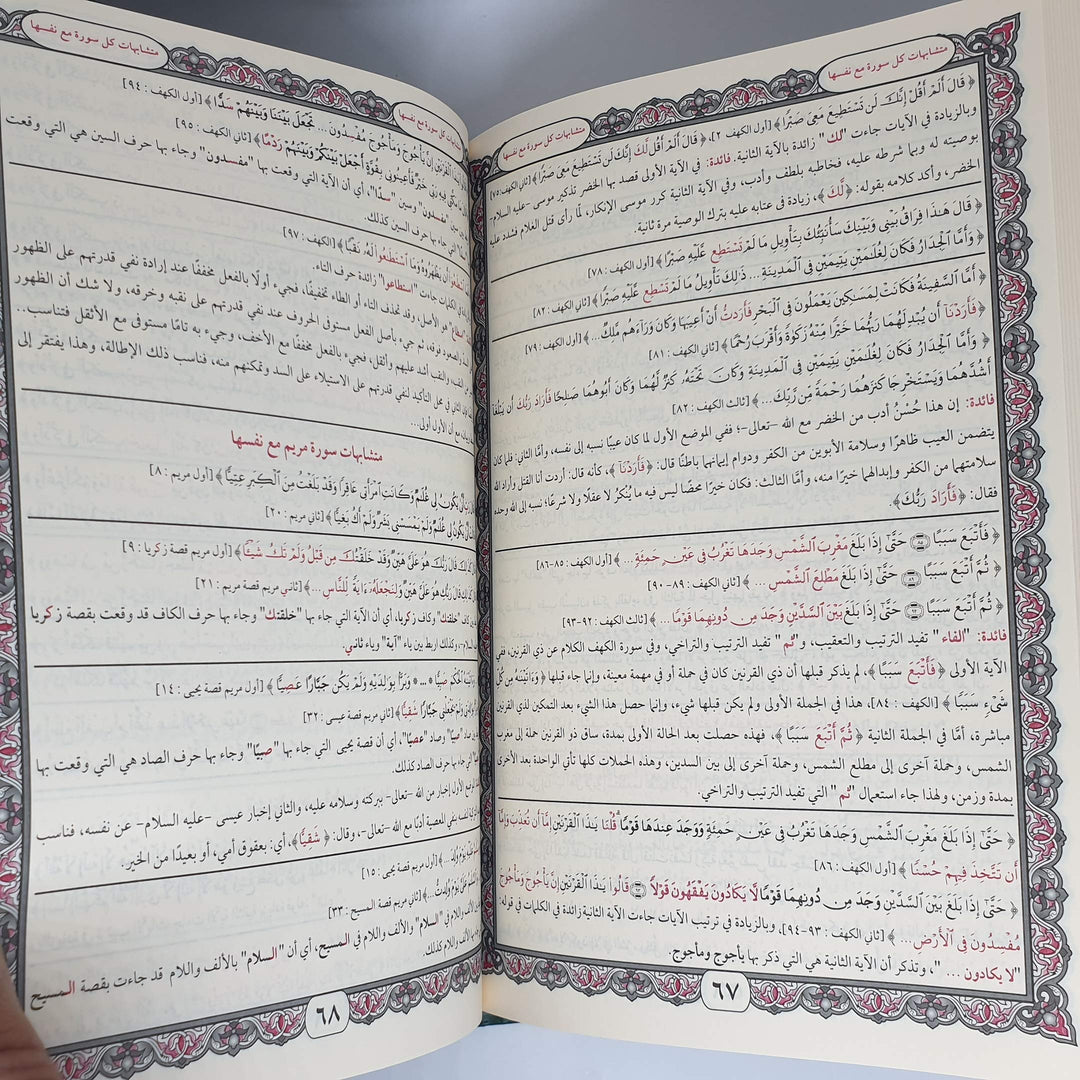 متشابهات كل سورة مع نفسها
متشابهات كل سورة مع نفسها
﴿ قَالَ أَلَمْ أَقُلْ إِنَّكَ لَن تَسْتَطِيعَ مَعِىَ صَبْرًا ﴾ [أول الكهف : ٧٢]. ﴿ قَالَ أَلَمْ أَقُل لَّكَ إِنَّكَ لَن تَسْتَطِيعَ مَعِىَ صَبْرًا ﴾ [ثاني الكهف : ٧٥]
وبالزيادة في الآيات جاءت "لك" زائدة بالآية الثانية. فائدة: في الآية الأولى قصد بها الخضر تذكير موسى -عليه السلام-
بوصيته له وبما شرطه عليه، فخاطبه بلطف وأدب، وفي الآية الثانية كرر موسى الإنكار، لمَّا رأى قتل الغلام فشدد عليه
الخضر، وأكد كلامه بقوله: ﴿ لَّكَ ﴾، زيادة في عتابه عليه بترك الوصية مرة ثانية.
﴿ قَالَ هَٰذَا فِرَاقُ بَيْنِى وَبَيْنِكَ سَأُنَبِّئُكَ بِتَأْوِيلِ مَا لَمْ تَسْتَطِع عَّلَيْهِ صَبْرًا ﴾ [أول الكهف : ٧٨]
﴿ وَأَمَّا ٱلْجِدَارُ فَكَانَ لِغُلَٰمَيْنِ يَتِيمَيْنِ فِى ٱلْمَدِينَةِ ... ذَٰلِكَ تَأْوِيلُ مَا لَمْ تَسْطِع عَّلَيْهِ صَبْرًا ﴾ [ثاني الكهف : ٨٢]
﴿ أَمَّا ٱلسَّفِينَةُ فَكَانَتْ لِمَسَٰكِينَ يَعْمَلُونَ فِى ٱلْبَحْرِ فَأَرَدتُّ أَنْ أَعِيبَهَا وَكَانَ وَرَآءَهُم مَّلِكٌ... ﴾ [أول الكهف : ٧٩]
﴿ فَأَرَدْنَآ أَن يُبْدِلَهُمَا رَبُّهُمَا خَيْرًا مِّنْهُ زَكَوٰةً وَأَقْرَبَ رُحْمًا ﴾ [ثاني الكهف : ٨١]
﴿ وَأَمَّا ٱلْجِدَارُ فَكَانَ لِغُلَٰمَيْنِ يَتِيمَيْنِ فِى ٱلْمَدِينَةِ وَكَانَ تَحْتَهُۥ كَنزٌ لَّهُمَا وَكَانَ أَبُوهُمَا صَٰلِحًا فَأَرَادَ رَبُّكَ أَن يَبْلُغَآ
أَشُدَّهُمَا وَيَسْتَخْرِجَا كَنزَهُمَا رَحْمَةً مِّن رَّبِّكَ ... ﴾ [ثالث الكهف : ٨٢]
فائدة: إن هذا حُسْنُ أدب من الخضر مع الله -تعالى-؛ ففي الموضع الأول لما كان عيبًا نسبه إلى نفسه، وأمَّا الثاني: فلما كان
يتضمن العيب ظاهرًا وسلامة الأبوين من الكفر ودوام إيمانهما باطنًا قال: ﴿ فَأَرَدْنَا ﴾، كأنه قال: أردت أنا القتل وأراد الله
سلامتهما من الكفر وإبدالهما خيرًا منه، وأما الثالث: فكان خيرًا محضًا ليس فيه ما يُنكر لا عقلًا ولا شرعًا؛ نسبه إلى الله وحده
فقال: ﴿ فَأَرَادَ رَبُّكَ ﴾.
﴿ فَأَتْبَعَ سَبَبًا ۝ حَتَّىٰٓ إِذَا بَلَغَ مَغْرِبَ ٱلشَّمْسِ وَجَدَهَا تَغْرُبُ فِى عَيْنٍ حَمِئَةٍ... ﴾ [أول الكهف : ٨٥-٨٦]
﴿ ثُمَّ أَتْبَعَ سَبَبًا ۝ حَتَّىٰٓ إِذَا بَلَغَ مَطْلِعَ ٱلشَّمْسِ ... ﴾ [ثاني الكهف : ٨٩- ٩٠]
﴿ ثُمَّ أَتْبَعَ سَبَبًا ۝ حَتَّىٰٓ إِذَا بَلَغَ بَيْنَ ٱلسَّدَّيْنِ وَجَدَ مِن دُونِهِمَا قَوْمًا... ﴾ [ثالث الكهف : ٩٢-٩٣]
فائدة: "الفاء" تفيد الترتيب والتعقيب، و"ثم" تفيد الترتيب والتراخي، وفي سورة الكهف الكلام عن ذي القرنين، ففي
الآية الأولى ﴿ فَأَتْبَعَ سَبَبًا ﴾، لم يذكر قبلها أن ذي القرنين كان في حملة أو في مهمة معينة، وإنما جاء قبلها ﴿ وَءَاتَيْنَٰهُ مِن كُلِّ
شَىْءٍ سَبَبًا ﴾ [الكهف : ٨٤]، هذا في الجملة الأولى ولم يكن قبلها شيء، وإنما حصل هذا الشيء بعد التمكين لذي القرنين
مباشرة، أمَّا في الجملة الثانية ﴿ ثُمَّ أَتْبَعَ سَبَبًا ﴾، فهذه حصلت بعد الحالة الأولى بمدة، ساق ذو القرنين حملة إلى مغرب
الشمس، وحملة أخرى إلى مطلع الشمس، وحملة أخرى إلى بين السدين، وهذه الحملات كلها تأتي الواحدة بعد الأخرى
بمدة وزمن، ولهذا جاء استعمال "ثم" التي تفيد الترتيب والتراخي.
﴿ حَتَّىٰٓ إِذَا بَلَغَ مَغْرِبَ ٱلشَّمْسِ وَجَدَهَا تَغْرُبُ فِى عَيْنٍ حَمِئَةٍ وَوَجَدَ عِندَهَا قَوْمًا ۗ قُلْنَا يَٰذَا ٱلْقَرْنَيْنِ إِمَّآ أَن تُعَذِّبَ وَإِمَّآ
أَن تَتَّخِذَ فِيهِمْ حُسْنًا ﴾ [أول الكهف : ٨٦]
﴿ حَتَّىٰٓ إِذَا بَلَغَ بَيْنَ ٱلسَّدَّيْنِ وَجَدَ مِن دُونِهِمَا قَوْمًا لَّا يَكَادُونَ يَفْقَهُونَ قَوْلًا ۝ قَالُوا۟ يَٰذَا ٱلْقَرْنَيْنِ إِنَّ يَأْجُوجَ وَمَأْجُوجَ
مُفْسِدُونَ فِى ٱلْأَرْضِ... ﴾ [ثاني الكهف : ٩٣-٩٤]. وبالزيادة في ترتيب الآيات جاءت الآية الثانية زائدة في الكلمات في قوله:
"لا يكادون ... "، وتذكر أن الآية الثانية هي التي ذكر بها يأجوج ومأجوج.
٦٧
متشابهات كل سورة مع نفسها
متشابهات كل سورة مع نفسها
ٱلْقَرْنَيْنِ إِنَّ يَأْجُوجَ وَمَأْجُوجَ مُفْسِدُونَ ... تَجْعَلَ بَيْنَنَا وَبَيْنَهُمْ سَدًّا ﴾ [أول الكهف : ٩٤]
مَكَّنِّى فِيهِ رَبِّى خَيْرٌ فَأَعِينُونِى بِقُوَّةٍ أَجْعَلْ بَيْنَكُمْ وَبَيْنَهُمْ رَدْمًا ﴾ [ثاني الكهف : ٩٥]
سين "مفسدون" وسين "سدا"، أي أن الآية التي وقعت بها "مفسدون" وجاء بها حرف السين هي التي وقعت
جاء بها حرف السين كذلك.
ٱسْطَٰعُوٓا۟ أَن يَظْهَرُوهُ وَمَا ٱسْتَطَٰعُوا۟ لَهُۥ نَقْبًا ﴾ [الكهف : ٩٧]
في الكلمات جاءت "استطاعوا" زائدة حرف التاء.
هو الأصل، وقد تحذف التاء أو الطاء تخفيفًا، فجيء أولًا بالفعل مخففًا عند إرادة نفي قدرتهم على الظهور
الصعود فوقه، ثم جيء بأصل الفعل مستوفى الحروف عند نفي قدرتهم على نقبه وخرقه، ولا شك أن الظهور
النقب، والنقب أشد عليهم وأثقل، فجيء بالفعل مخففًا مع الأخف، وجيء به تامًا مستوفى مع الأثقل فتناسب..
الثاني في محل التأكيد لنفي قدرتهم على الاستيلاء على السد وتمكنهم منه، فناسب ذلك الإطالة، وهذا يفتقر إلى
مع أن الأول أولى...
متشابهات سورة مريم مع نفسها
يَكُونُ لِى غُلَٰمٌ وَكَانَتِ ٱمْرَأَتِى عَاقِرًا وَقَدْ بَلَغْتُ مِنَ ٱلْكِبَرِ عِتِيًّا ﴾ [أول مريم : ٨]
يَكُونُ لِى غُلَٰمٌ وَلَمْ يَمْسَسْنِى بَشَرٌ وَلَمْ أَكُ بَغِيًّا ﴾ [ثاني مريم : ٢٠]
قَالَ رَبُّكَ هُوَ عَلَىَّ هَيِّنٌ وَقَدْ خَلَقْتُكَ مِن قَبْلُ وَلَمْ تَكُ شَيْـًٔا ﴾ [أول مريم قصة زكريا : ٩]
قَالَ رَبُّكِ هُوَ عَلَىَّ هَيِّنٌ وَلِنَجْعَلَهُۥٓ ءَايَةً لِّلنَّاسِ... ﴾ [ثاني مريم قصة مريم : ٢١]
"خلقتك" وكاف زكريا، أي أن الآية التي جاء بها "خلقتك" وجاء بها حرف الكاف قد وقعت بقصة زكريا
السلام-، وكذلك اربط بين ياء "آية" وياء ثاني.
ٱلْحُكْمَ صَبِيًّا * ... * وَبَرًّۢا بِوَٰلِدَيْهِ وَلَمْ يَكُن جَبَّارًا عَصِيًّا ﴾ [أول مريم قصة يحيى : ١٤]
وَلَمْ يَجْعَلْنِى جَبَّارًا شَقِيًّا ﴾ [ثاني مريم قصة عيسى : ٣٢]
"صبيا" وصاد "عصيا"، أي أن قصة يحيى التي جاء بها "صبيا" وجاء بها حرف الصاد هي التي وقعت بها
جاء بها حرف الصاد كذلك.
الأول إخبار من الله -تعالى- ببركته وسلامه عليه، والثاني إخبار عيسى -عليه السلام- عن نفسه، فناسب
بنفي المعصية أدبًا مع الله -تعالى-، وقال: ﴿ شَقِيًّا ﴾، أي: بعقوق أمي، أو بعيدًا من الخير.
[أول مريم قصة يحيى : ١٥]
[ثاني مريم قصة المسيح : ٣٣]
الألف واللام في "السلام" والألف واللام في المسيح، أي أن "السلام" بالألف واللام قد جاءت بقصة المسيح
بالألف واللام كذلك.
٦٨